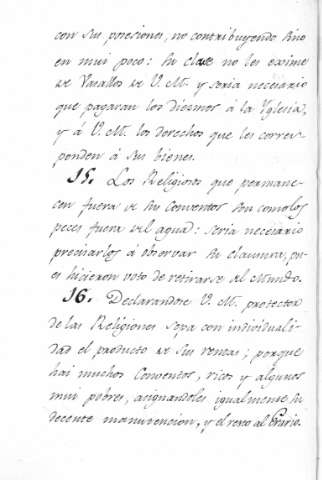 con sus posesiones, no contribuyendo sino
en mui poco: su clase no les exime
de Vasallos de V. M. y seria necesario
que pagaran los Diezmos á la Yglesia,
y á V. M. los derechos que les corres-
ponden á sus bienes.
15. Los Religiosos que permane-
cen fuera de sus Conventos son como los
peces fuera del agua: seria necesario
precisarlos á observar su clausura, pu-
es hicieron voto de retirarse del Mundo.
16. Declarandose V. M. protector
de las Religiones sepa con individuali-
dad el producto de sus rentas; porque
hai muchos Conventos, ricos y algunos
mui pobres, asignandoles igualmente su
decente manutencion, y el resto al Erario.